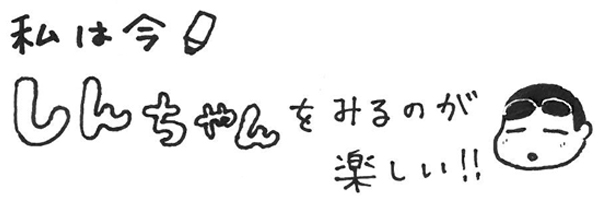 私は今
しんちゃんをみるのが
楽しい!!